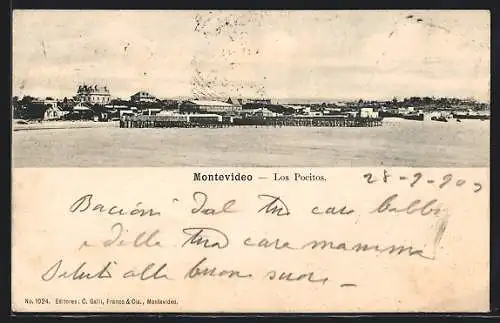 Montevideo — Los Pocitos.
28-9-903
Bacioni dal tuo caro babbo
e dille tua cara mamma
Saluti alle buone suore —
No. 1024. Editores: C. Galli, Franco & Cia., Montevideo.